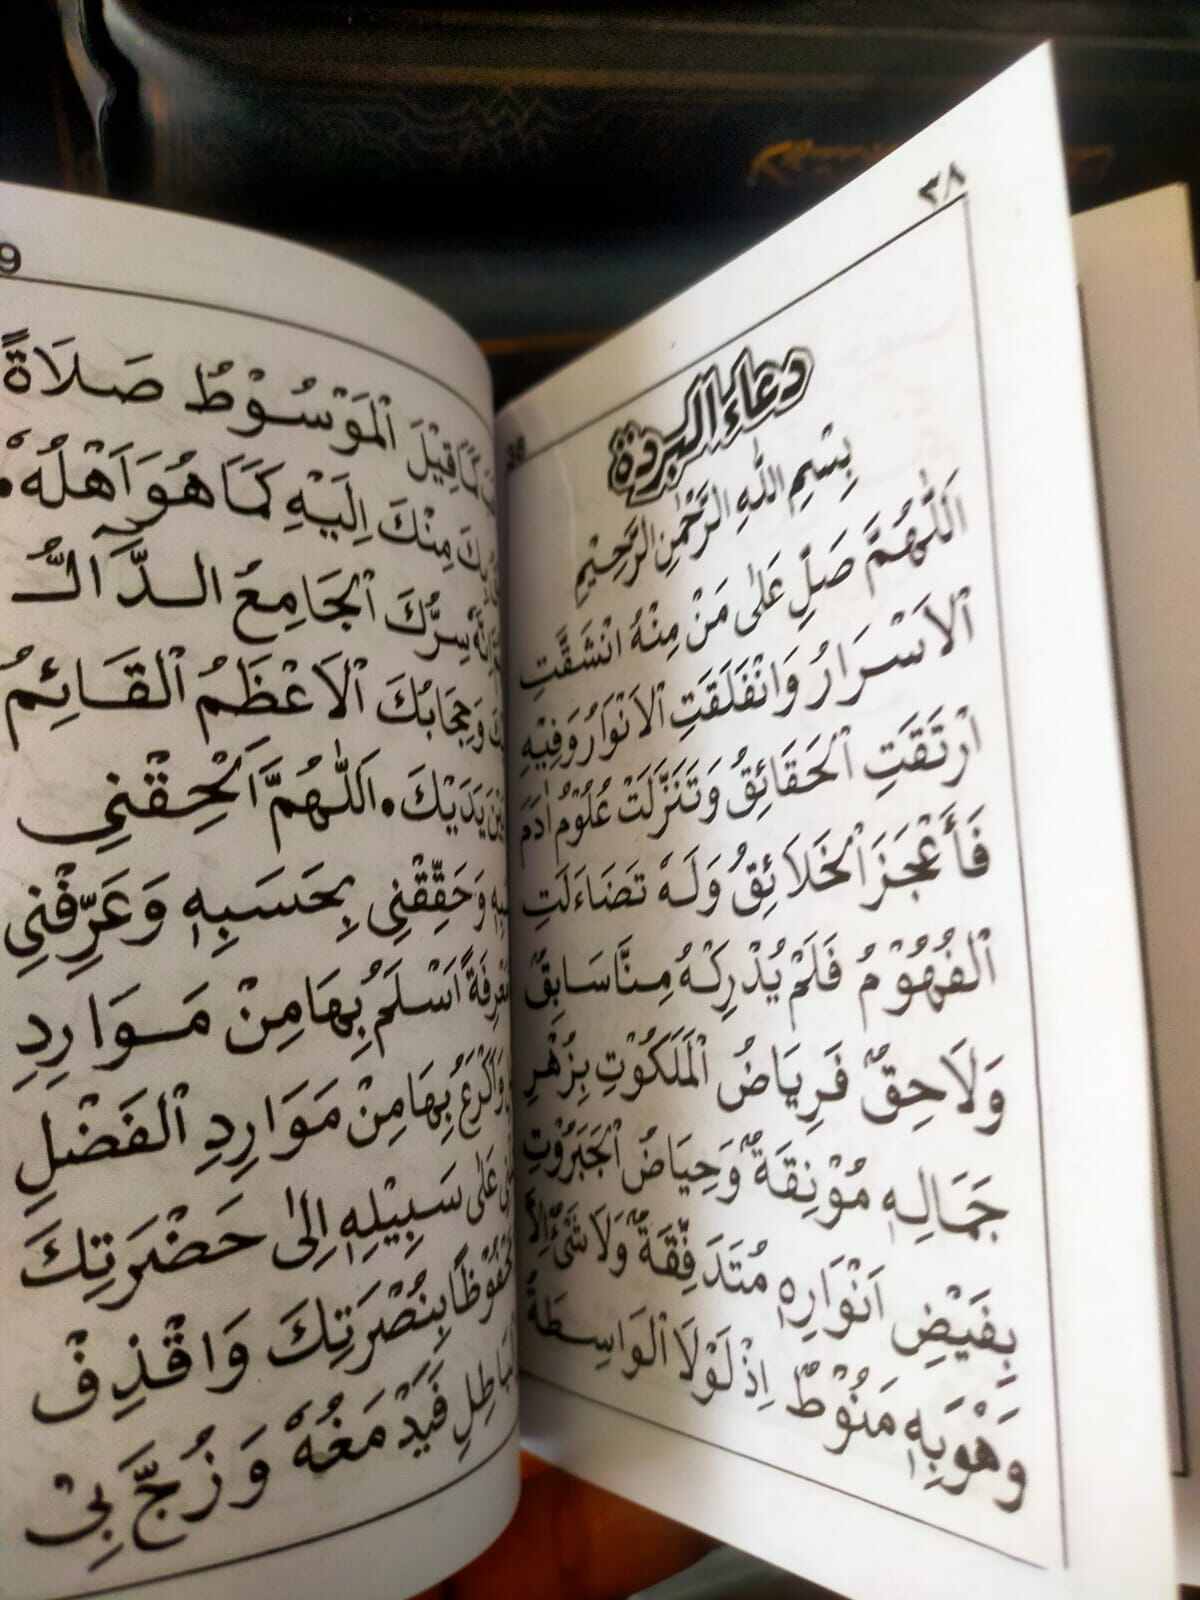 ٣٨
38
دعاء البردة
بِسْمِ اللهِ الرَّحْمٰنِ الرَّحِيْمِ
اَللّٰهُمَّ صَلِّ عَلٰى مَنْ مِنْهُ انْشَقَّتِ
الْاَسْرَارُ وَانْفَلَقَتِ الْاَنْوَارُ وَفِيْهِ
ارْتَقَتِ الْحَقَائِقُ وَتَنَزَّلَتْ عُلُوْمُ اٰدَمَ
فَأَعْجَزَ الْخَلَائِقُ وَلَهٗ تَضَاءَلَتِ
الْفُهُوْمُ فَلَمْ يُدْرِكْهُ مِنَّا سَابِقٌ
وَلَا حِقٌ فَرِيَاضُ الْمَلَكُوْتِ بِزُهْرِ
جَمَالِهٖ مُوْنِقَةٌ وَحِيَاضُ الْجَبَرُوْتِ
بِفَيْضِ اَنْوَارِهٖ مُتَدَفِّقَةٌ وَلَا شَيْءَ اِلَّا
وَهْوَبِهٖ مَنُوْطٌ اِذْ لَوْلَا الْوَاسِطَةُ
9
لَمَا قِيْلَ الْمَوْسُوْطُ صَلَاةً
مِنْكَ اِلَيْهِ كَمَا هُوَ اَهْلُهٗ.
سِرُّكَ الْجَامِعُ الـدَّآلُّ
وَحِجَابُكَ الْاَعْظَمُ الْقَـائِمُ
بَيْنَ يَدَيْكَ. اَللّٰهُمَّ اَلْحِقْنِي
وَحَقِّقْنِي بِحَسَبِهٖ وَعَرِّفْنِي
اَسْلَمُ بِهَا مِنْ مَـوَارِدِ
وَاَكْرَعُ بِهَا مِنْ مَوَارِدِ الْفَضْلِ
عَلٰى سَبِيْلِهٖ اِلٰى حَضْرَتِكَ
بِنُصْرَتِكَ وَاقْذِفْ
فَيَدْمَغُهٗ وَزُجَّ بِيْ